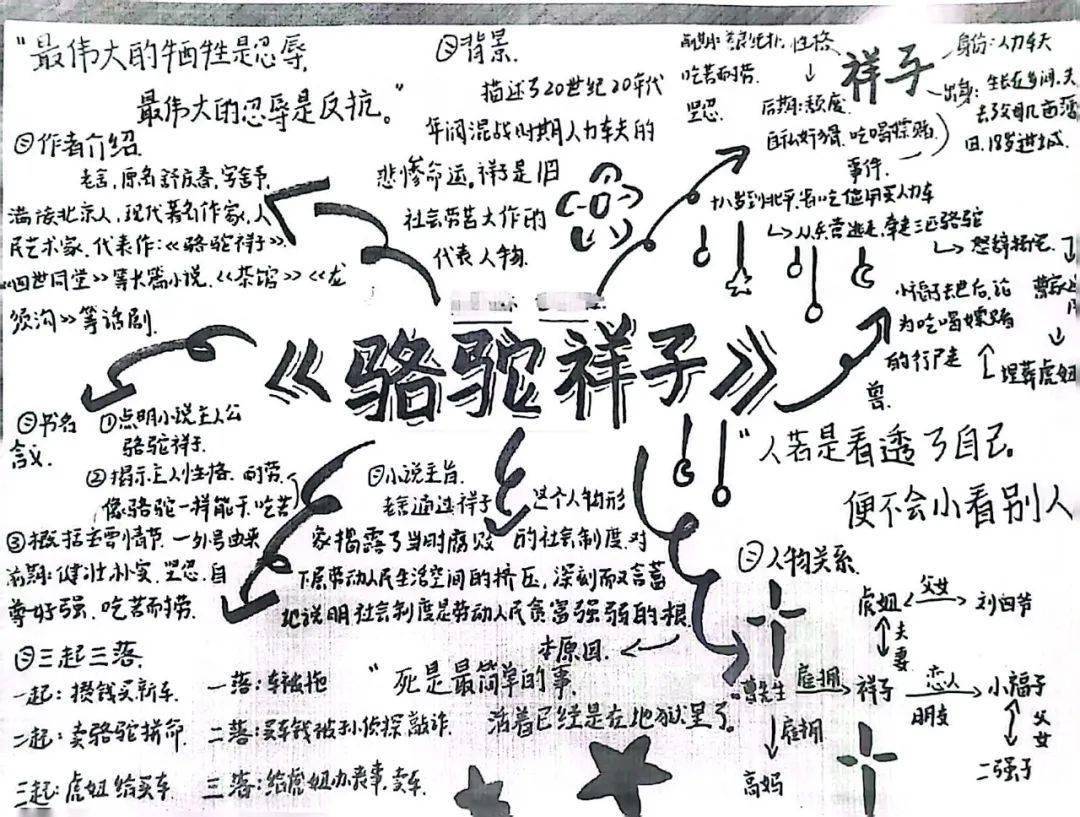 "最伟大的牺牲是忍辱,
最伟大的忍辱是反抗。"
作者介绍.
老舍,原名舒庆春,字舍予,
满族北京人,现代著名作家,人
民艺术家.代表作:《骆驼祥子》
《四世同堂》等长篇小说.《茶馆》《龙
须沟》等话剧.
背景.
描述了20世纪20年代
年间混战时期人力车夫的
悲惨命运,祥子是旧
社会劳苦大作的
代表人物.
祥子
身份:人力车夫
出身:生长在乡间,失
去了父母几亩薄
田,18岁进城.
性格
吃苦耐劳.
坚忍.
后期:颓废
自私好猾,吃喝嫖赌.
事件.
从兵营逃走,牵走三匹骆驼
小福子去世后,沦
为吃喝嫖赌
的行尸走
兽.
埋葬虎妞
《骆驼祥子》
书名
含义.
①点明小说主人公
骆驼祥子.
②揭示主人性格.耐劳.
像骆驼一样能干.吃苦
③概括主要情节.一外号由来
前期:健壮朴实.坚忍.自
尊好强.吃苦耐劳.
小说主旨.
老舍通过祥子 这个人物形
家揭露了当时腐败 的社会制度.对
下层劳动人民生活空间的挤压,深刻而又含蓄
地说明社会制度是劳动人民贫富强弱的根
本原因.
"人若是看透了自己.
便不会小看别人
三起三落.
一起:攒钱买新车. 一落:车被拖
二起:卖骆驼拼命. 二落:买车钱被孙侦探敲诈.
三起:虎妞给买车. 三落:给虎妞办丧事,卖车.
"死是最简单的事.
活着已经是在地狱里了.
人物关系.
虎妞 父女 刘四爷
夫妻
曹先生 雇拥 祥子 恋人 小福子
朋友
雇拥
父女
高妈
二强子